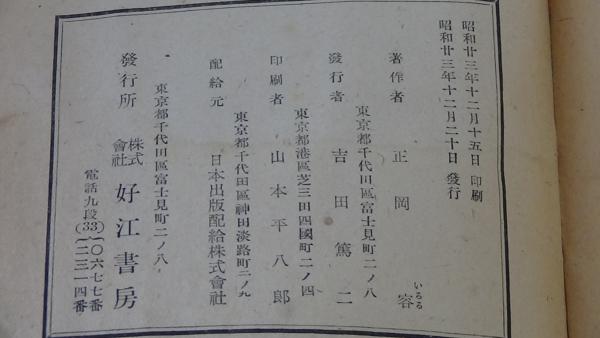 昭和廿三年十二月十五日 印刷
昭和廿三年十二月二十日 發行
著作者 正岡容
いるる
東京都千代田區富士見町二ノ八
發行者 吉田篤二
東京都港區芝三田四國町二ノ四
印刷者 山本平八郎
東京都千代田區神田淡路町二ノ九
配給元 日本出版配給株式會社
東京都千代田區富士見町二ノ八
發行所 株式會社 好江書房
電話九段(33)〇六七七番
二三一四番